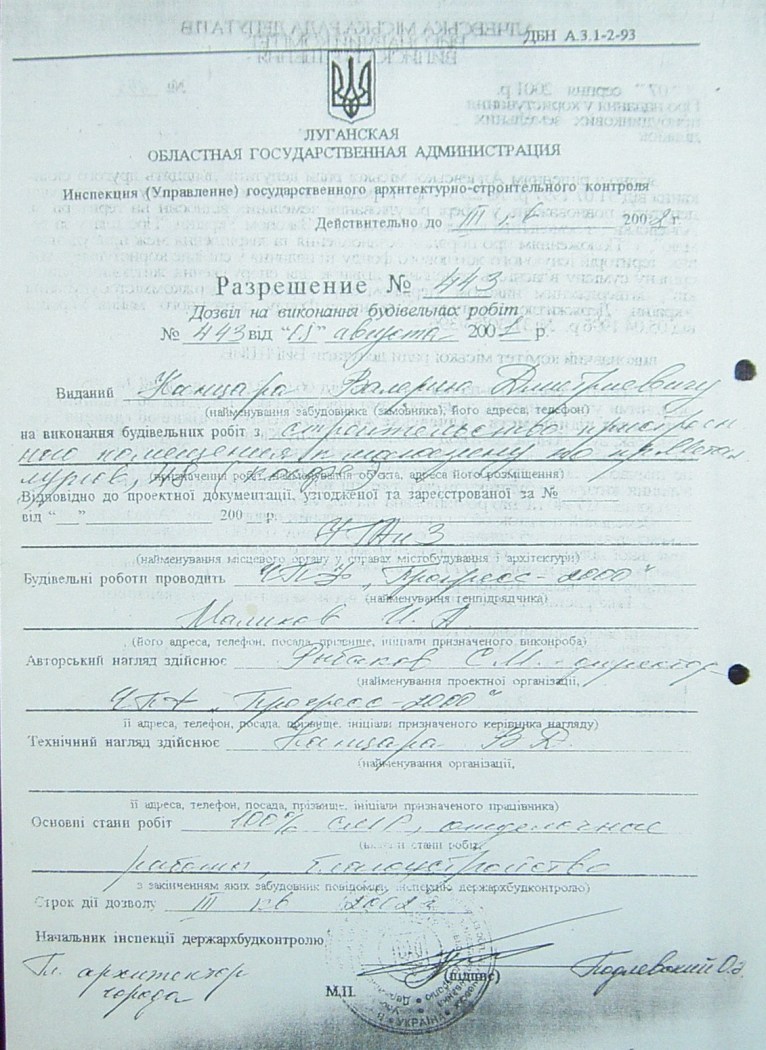 ДБН А.3.1-2-93
ЛУГАНСКАЯ
ОБЛАСТНАЯ ГОСУДАРСТВЕННАЯ АДМИНИСТРАЦИЯ
Инспекция (Управление) государственного архитектурно-строительного контроля
Действительно до III кв 2002 г.
Разрешение № 443
Дозвіл на виконання будівельних робіт
№ 443 від " " августа 2001 р.
Виданий Канцара Валерию Дмитриевичу
(найменування забудовника (замовника), його адреса, телефон)
на виконання будівельних робіт з строительство пристроен
ного помещения к магазину по пр. Метал
лургов,
(призначенні робіт, найменування об'єкта, адреса його розміщення)
Відповідно до проектної документації, узгодженої та зареєстрованої за №
від "__" 200 р.
УГАиЗ
(найменування місцевого органу у справах містобудування і архітектури)
Будівельні роботи проводить ЧПФ „Прогресс-2000"
(найменування генпідрядчика)
Маликов И. А
(його адреса, телефон, посада, прізвище, ініціали призначеного виконроба)
Авторський нагляд здійснює Рыбаков С.М. - директор
(найменування проектної організації,
ЧПФ „Прогресс-2000"
її адреса, телефон, посада, прізвище, ініціали призначеного керівника нагляду)
Технічний нагляд здійснює Канцара В Д.
(найменування організації,
її адреса, телефон, посада, прізвище, ініціали призначеного працівника)
Основні стани робіт 100% СМР, отделочные
стани робіт,
работы, благоустройство
з закінченням яких забудовник повідомляє інспекцію держархбудконтролю)
Строк дії дозволу III кв 2002 г
Начальник інспекції держархбудконтролю
Гл. архитектор
города
М.П.
(підпис)
Подлевский О.
УКРАЇНА